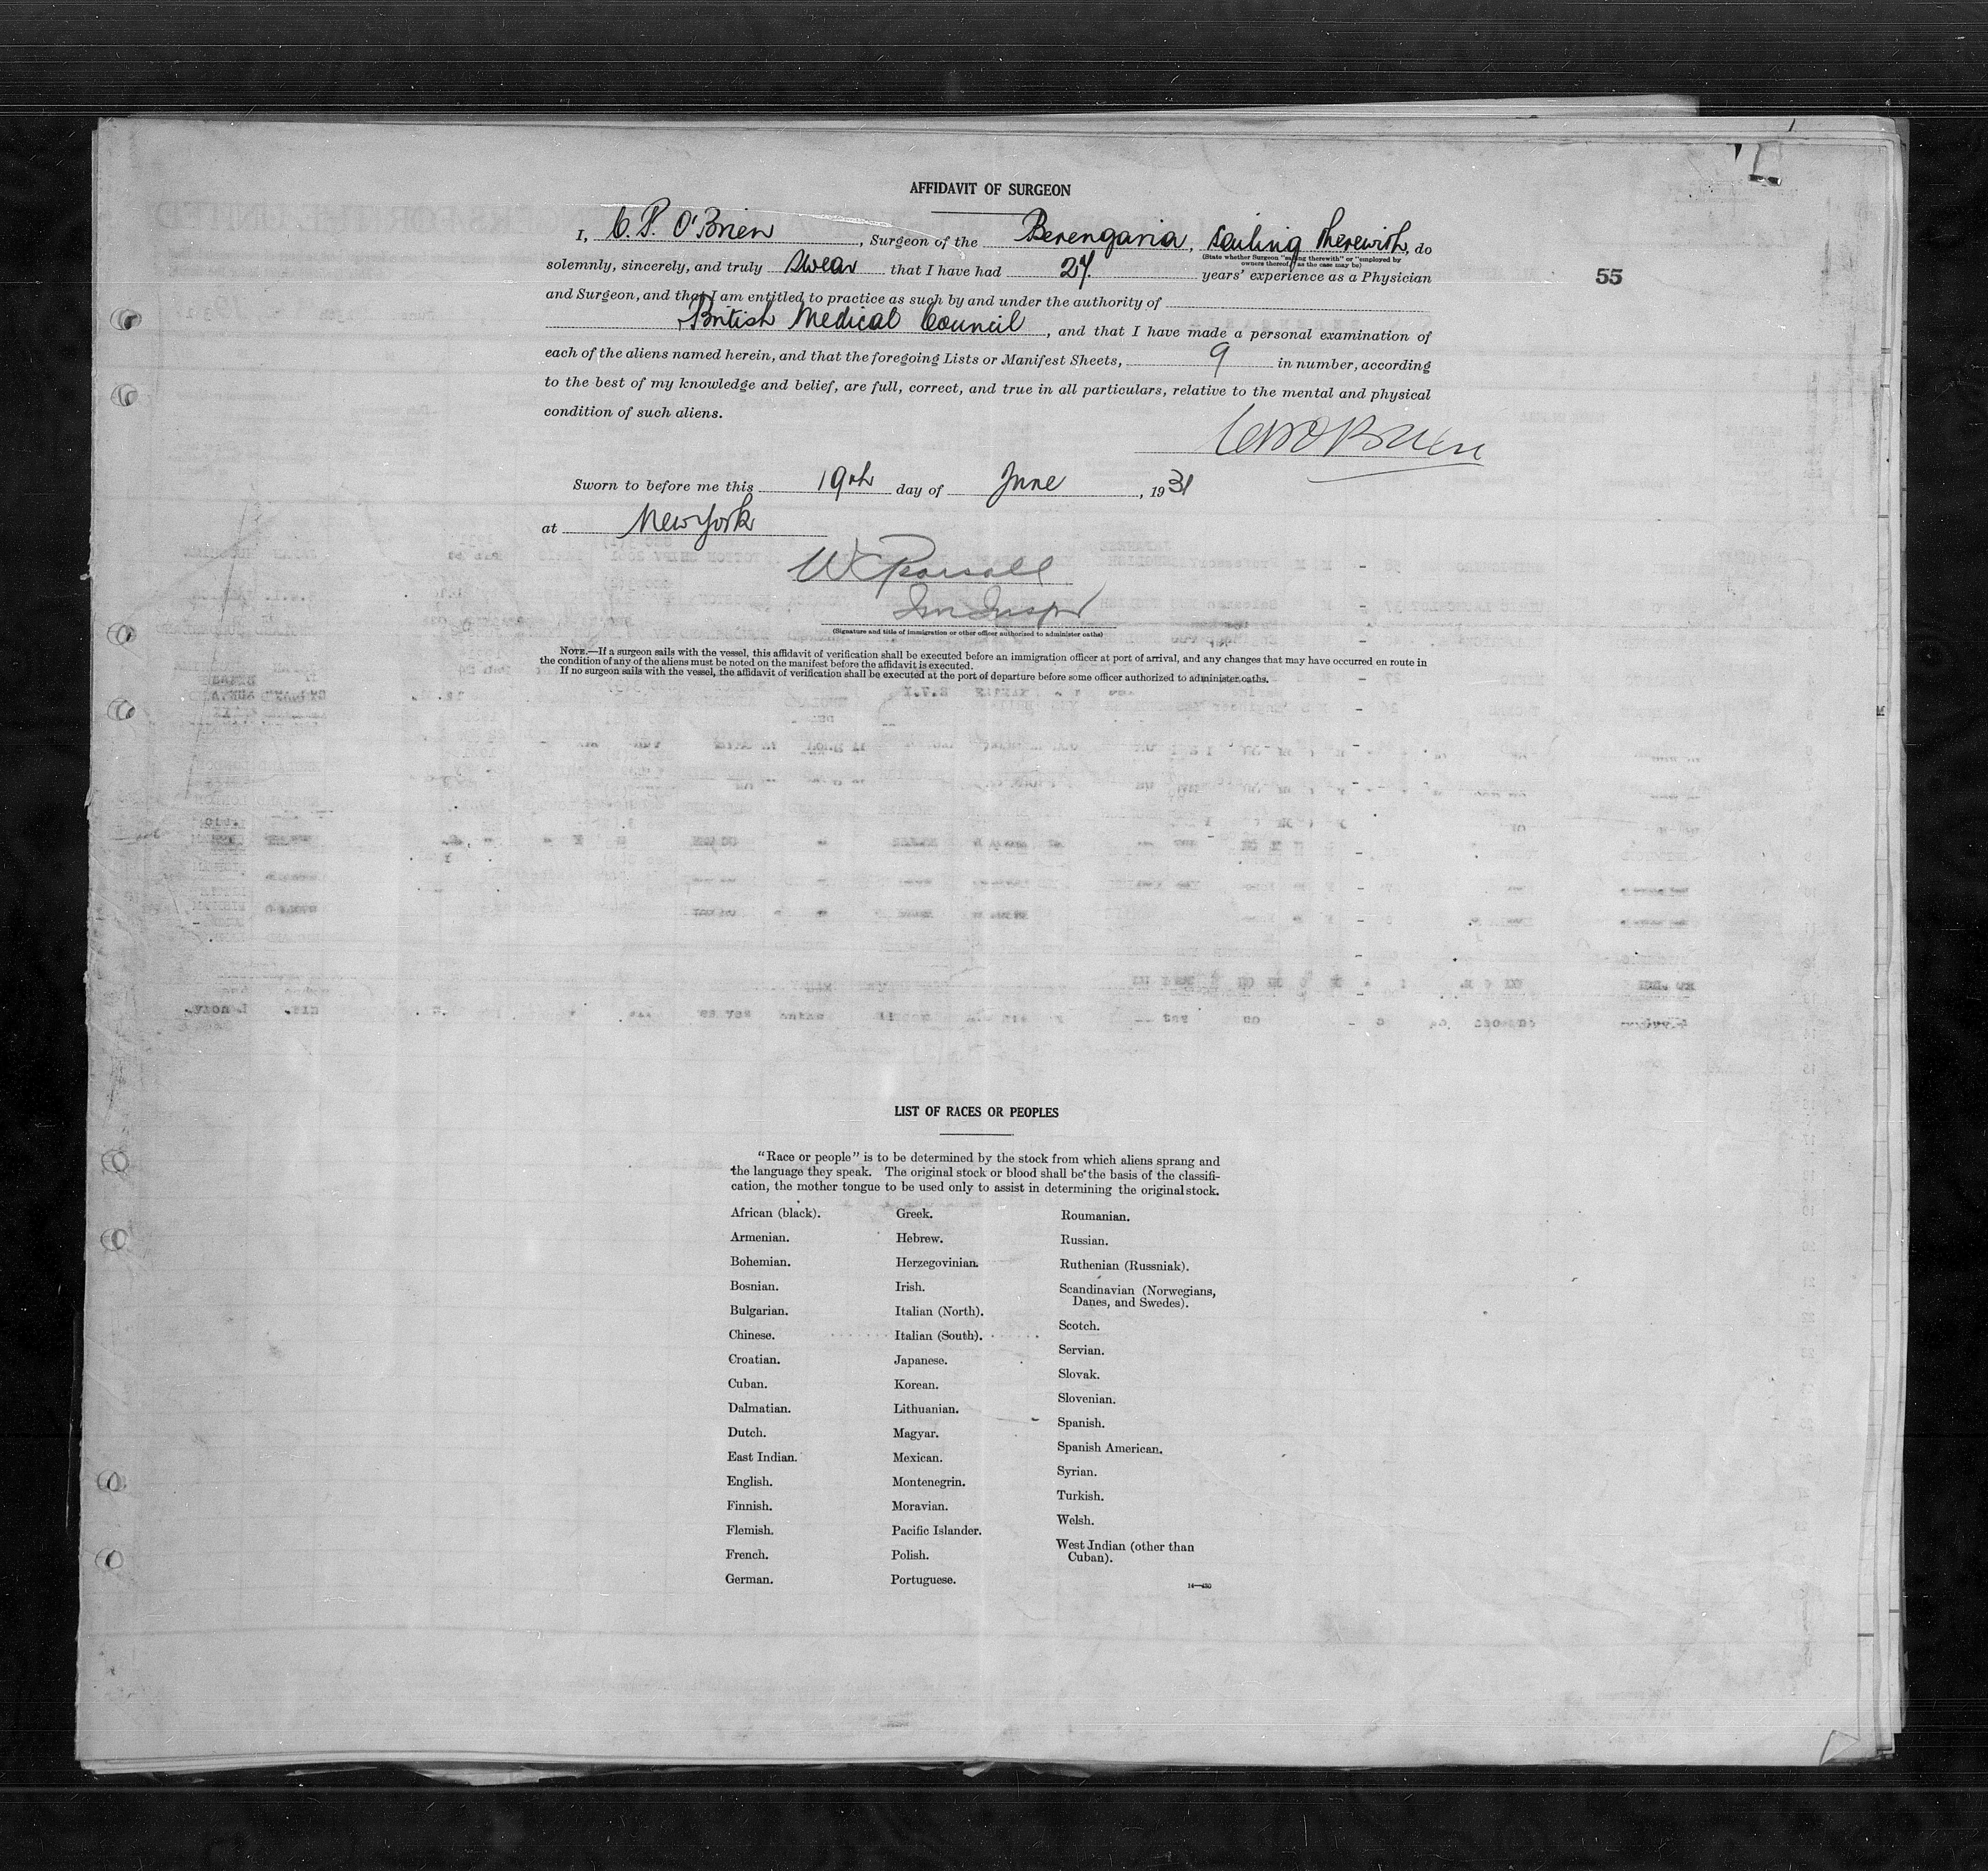 AFFIDAVIT OF SURGEON
I, C. P. O'Brien, Surgeon of the Berengaria, sailing therewith, do
(State whether Surgeon "sailing therewith" or "employed by
owners thereof," as the case may be)
solemnly, sincerely, and truly swear that I have had 27 years' experience as a Physician
55
and Surgeon, and that I am entitled to practice as such by and under the authority of
British Medical Council, and that I have made a personal examination of
each of the aliens named herein, and that the foregoing Lists or Manifest Sheets, 9 in number, according
to the best of my knowledge and belief, are full, correct, and true in all particulars, relative to the mental and physical
condition of such aliens.
CPO'Brien
Sworn to before me this 19th day of June, 1931
at New York
W Pearsall
Im Inspr
(Signature and title of immigration or other officer authorized to administer oaths)
NOTE.—If a surgeon sails with the vessel, this affidavit of verification shall be executed before an immigration officer at port of arrival, and any changes that may have occurred en route in
the condition of any of the aliens must be noted on the manifest before the affidavit is executed.
If no surgeon sails with the vessel, the affidavit of verification shall be executed at the port of departure before some officer authorized to administer oaths.
LIST OF RACES OR PEOPLES
"Race or people" is to be determined by the stock from which aliens sprang and
the language they speak. The original stock or blood shall be the basis of the classifi-
cation, the mother tongue to be used only to assist in determining the original stock.
African (black).
Armenian.
Bohemian.
Bosnian.
Bulgarian.
Chinese.
Croatian.
Cuban.
Dalmatian.
Dutch.
East Indian.
English.
Finnish.
Flemish.
French.
German.
Greek.
Hebrew.
Herzegovinian.
Irish.
Italian (North).
Italian (South).
Japanese.
Korean.
Lithuanian.
Magyar.
Mexican.
Montenegrin.
Moravian.
Pacific Islander.
Polish.
Portuguese.
Roumanian.
Russian.
Ruthenian (Russniak).
Scandinavian (Norwegians,
Danes, and Swedes).
Scotch.
Servian.
Slovak.
Slovenian.
Spanish.
Spanish American.
Syrian.
Turkish.
Welsh.
West Indian (other than
Cuban).
14—430